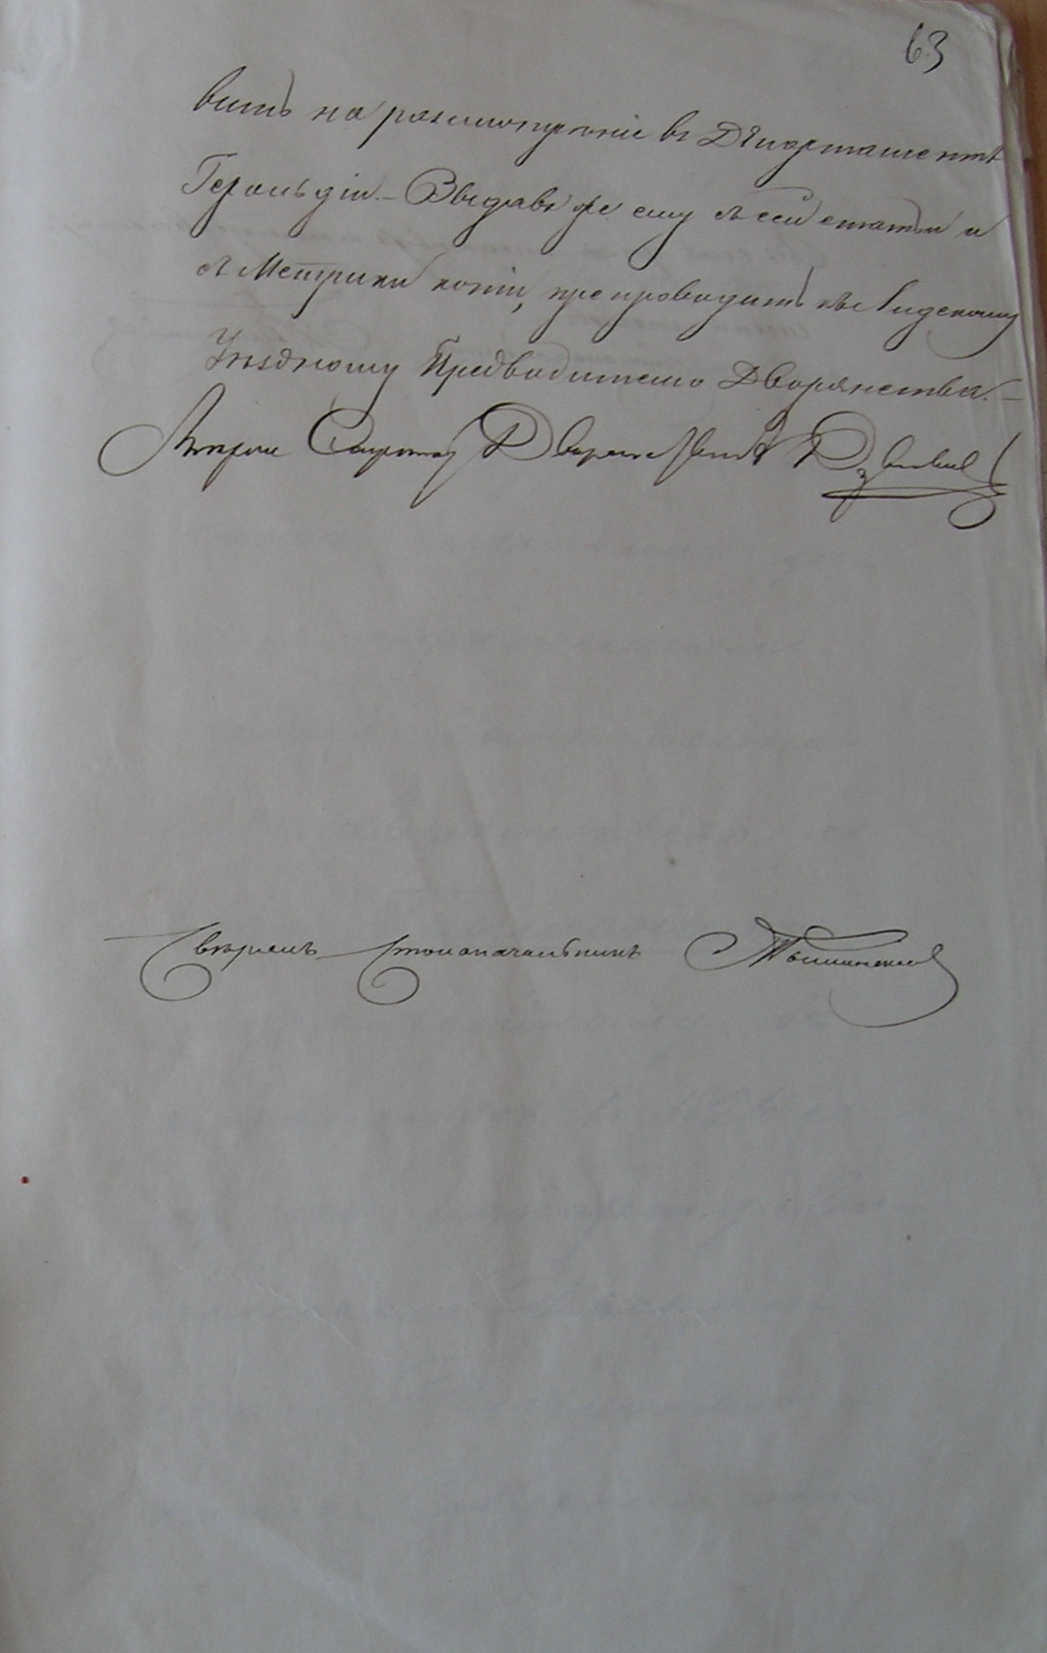 63
вить на разсмотреніе въ Департаментъ
Герольдіи. – Выдавъ же ему съ сей статьи и
съ Метрики копіи, препроводить къ Лидскому
Уѣздному Предводителю Дворянства. –
Секретарь Дворянства
Свѣрялъ Столоначальникъ